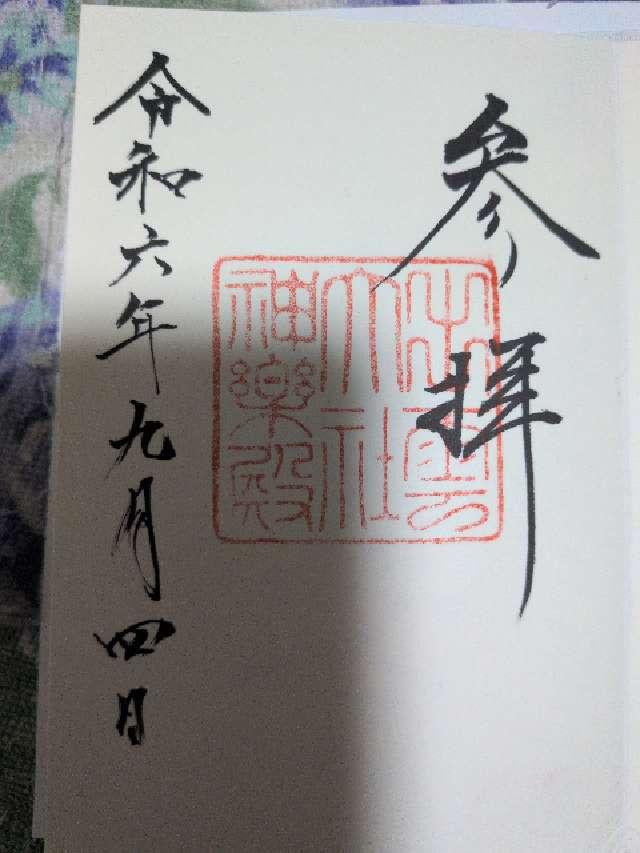 参拝
出雲
大社
神楽殿
令和六年九月四日